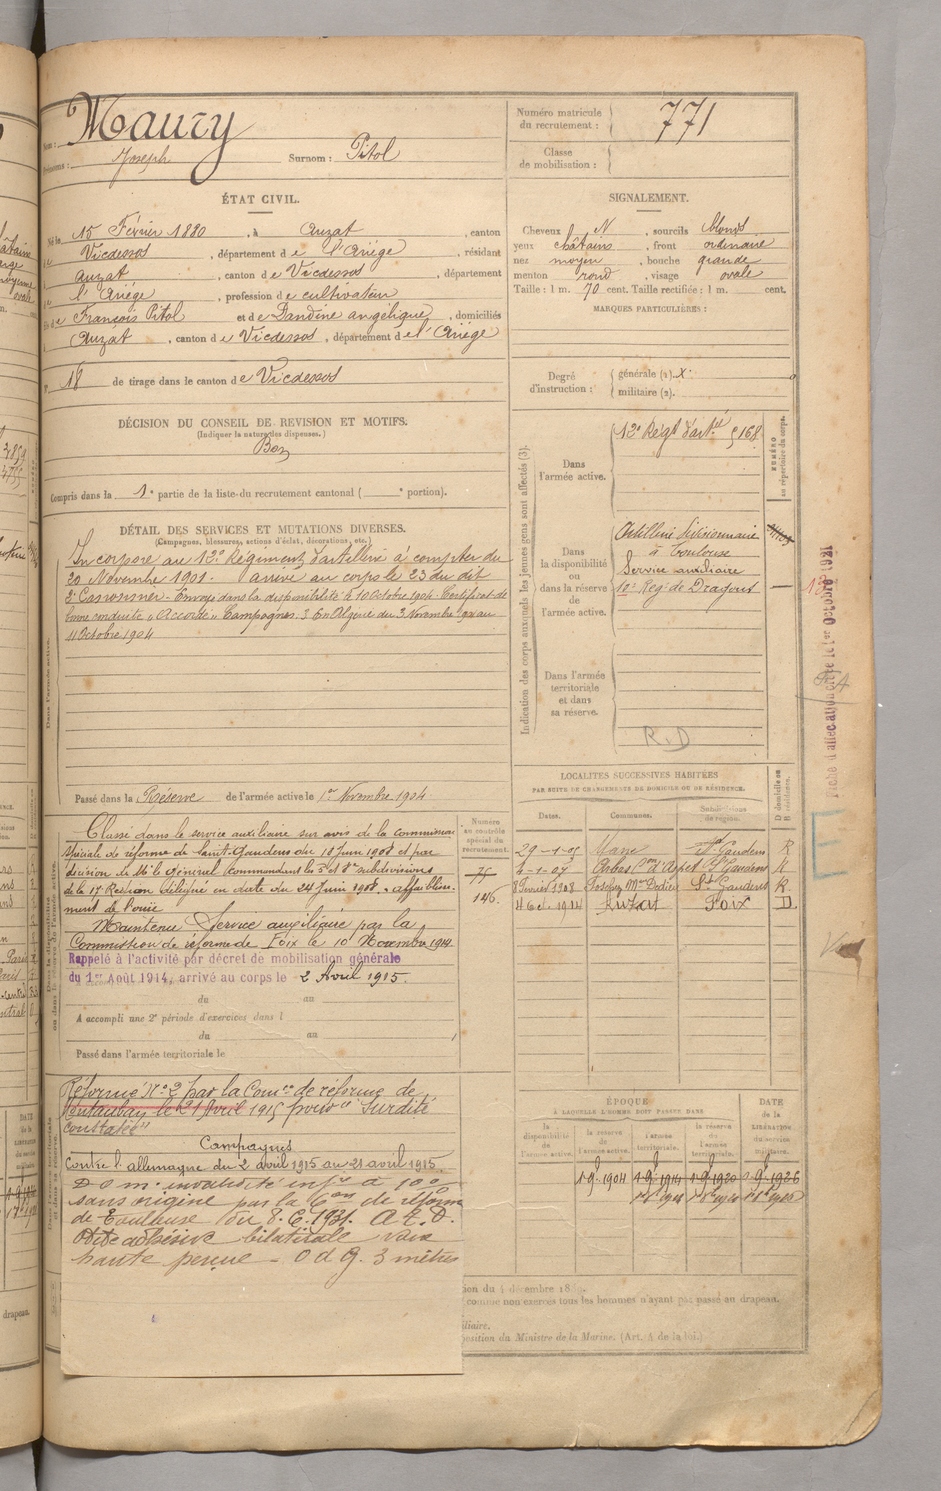 Nom : Maury
Prénoms : Joseph Surnom : Pitol
Numéro matricule du recrutement : 771
Classe de mobilisation :
ÉTAT CIVIL.
Né le 15 Février 1880, à Auzat, canton
de Vicdessos, département de l'Ariège, résidant
à Auzat, canton de Vicdessos, département
de l'Ariège, profession de cultivateur
fils de François Pitol et de Dandine angélique, domiciliés
à Auzat, canton de Vicdessos, département de l'Ariège
N° 18 de tirage dans le canton de Vicdessos
SIGNALEMENT.
Cheveux N, sourcils blonds
yeux châtains, front ordinaire
nez moyen, bouche grande
menton rond, visage ovale
Taille : 1 m. 70 cent. Taille rectifiée : 1 m. cent.
MARQUES PARTICULIÈRES :
Degré d'instruction : générale (1). X
militaire (2).
DÉCISION DU CONSEIL DE REVISION ET MOTIFS.
(Indiquer la nature des dispenses.)
Bon
Compris dans la 1e partie de la liste du recrutement cantonal ( e portion).
DÉTAIL DES SERVICES ET MUTATIONS DIVERSES.
(Campagnes, blessures, actions d'éclat, décorations, etc.)
Incorporé au 12e Régiment d'artillerie à compter du
20 Novembre 1901. arrivé au corps le 23 du dit
2e Canonnier. Envoyé dans la disponibilité le 10 Octobre 1904. Certificat de
bonne conduite "Accordé" Campagnes: En Algérie du 3 Novembre au
11 Octobre 1904
Dans l'armée active.
Passé dans la Réserve de l'armée active le 1er Novembre 1904
Indication des corps auxquels les jeunes gens sont affectés (3).
Dans l'armée active.
12e Régt d'artie 5168
NUMÉRO au répertoire du corps.
Dans la disponibilité ou dans la réserve de l'armée active.
Artillerie divisionnaire
à Toulouse
Service auxiliaire
10e Reg. de Dragons
Dans l'armée territoriale et dans sa réserve.
R.D
Fiche d'allocation créée le 1er Octobre 1921
LOCALITÉS SUCCESSIVES HABITÉES
PAR SUITE DE CHANGEMENTS DE DOMICILE OU DE RÉSIDENCE.
Dates. Communes. Subdivisions de région. D domicile ou R résidence.
29-1-05 Mane St Gaudens R
2-1-07 Arbas Con d'Aspet St Gaudens R
8 Février 1908 St Gaudens R.
4 Oct. 1914 Auzat Foix D.
Numéro au contrôle spécial du recrutement.
75
146.
Classé dans le service auxiliaire sur avis de la commission
spéciale de réforme de Saint-Gaudens du 18 Juin 1908 et par
décision de Mr le Général Commandant les 5e et 8e subdivisions
de la 17e Région délégué en date du 24 Juin 1908. - affaiblissement
de l'ouïe
Maintenu Service auxiliaire par la
Commission de réforme de Foix le 10 Novembre 1914
Rappelé à l'activité par décret de mobilisation générale
du 1er Août 1914, arrivé au corps le 2 Avril 1915.
du au
A accompli une 2e période d'exercices dans l
du au
Passé dans l'armée territoriale le
Réformé N° 2 par la Comon de réforme de
Montauban le 21 Avril 1915 pour "Surdité
constatée"
Campagnes
Contre l'allemagne du 2 avril 1915 au 21 avril 1915.
P.D m. invalidité infre à 10%
sans origine par la Com de réforme
de Toulouse du 8.6.1931. A.t.D.
Otite adhésive bilatérale voix
haute perçue - O d G. 3 mètres
ÉPOQUE
À LAQUELLE L'HOMME DOIT PASSER DANS
la disponibilité de l'armée active. la réserve de l'armée active. l'armée territoriale. la réserve de l'armée territoriale. DATE de la LIBÉRATION du service militaire.
1-9bre 1904 1-9bre 1914 1-9bre 1920 1-9bre 1926
tion du 4 décembre 1889.
comme non exercés tous les hommes n'ayant pas passé au drapeau.
iliaire.
position du Ministre de la Marine. (Art. 4 de la loi.)